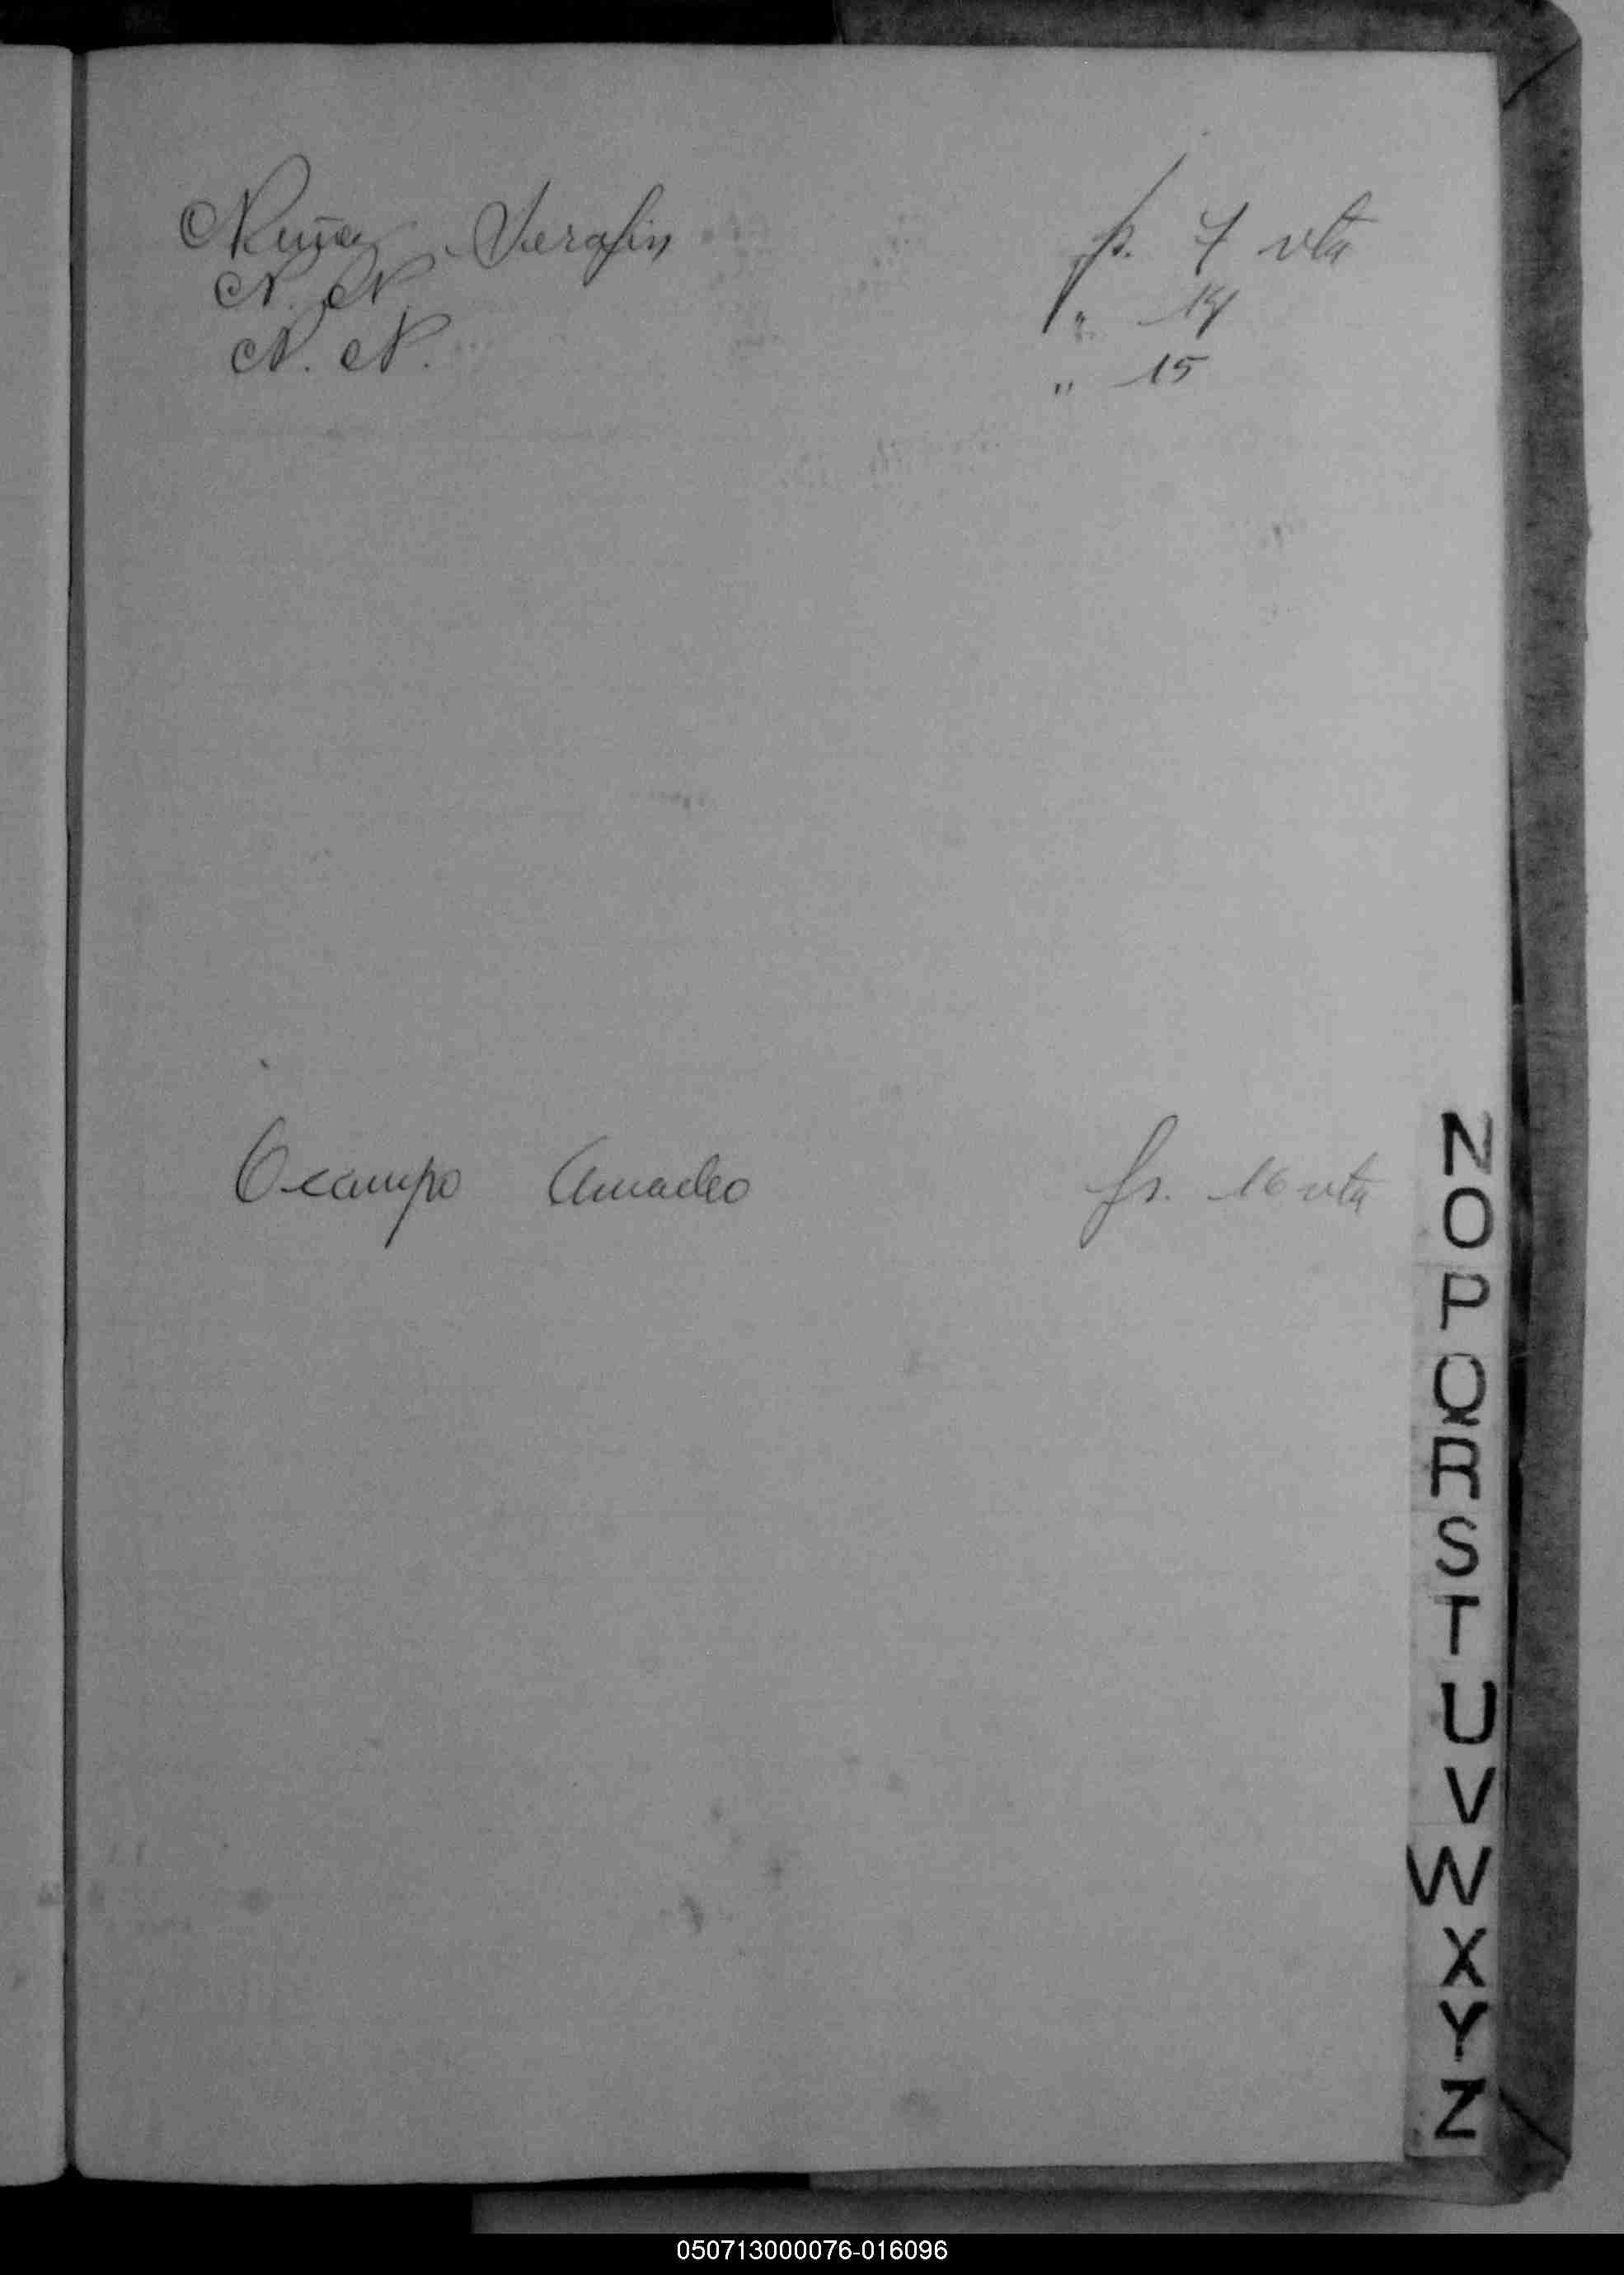 Nuñez Serafin fs. 7 vta
N. N. " 14
N. N. " 15
Ocampo Amadeo fs. 16 vta
N
O
P
Q
R
S
T
U
V
W
X
Y
Z
050713000076-016096